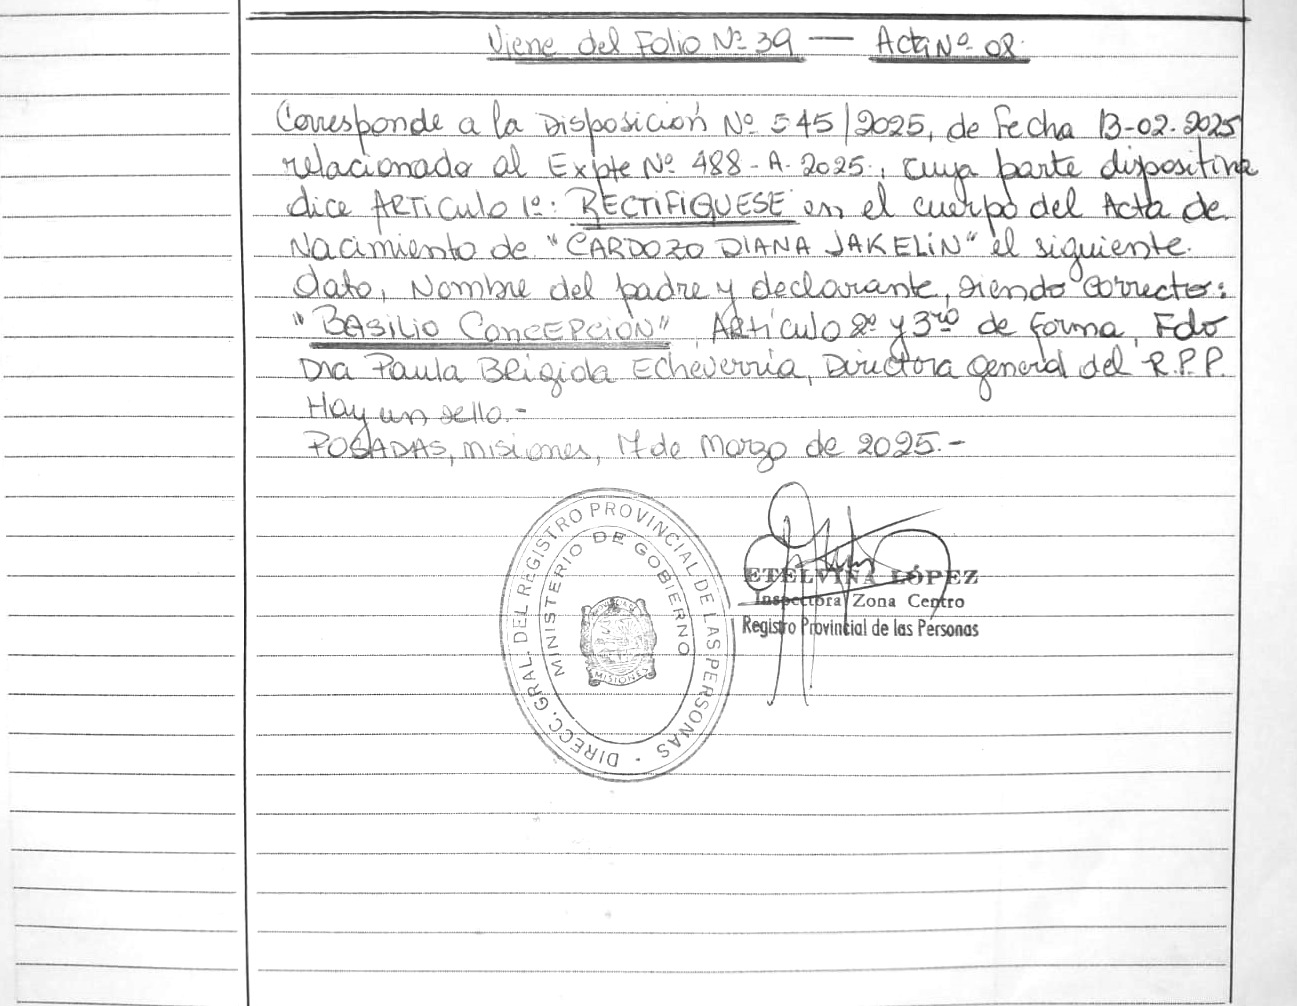 Viene del Folio Nº 39 — Acta Nº 08.
Corresponde a la Disposición Nº 545/2025, de fecha 13-02-2025
relacionado al Expte Nº 488-A-2025, cuya parte dispositiva
dice Artículo 1º: RECTIFIQUESE en el cuerpo del Acta de
Nacimiento de "CARDOZO DIANA JAKELIN" el siguiente
dato, Nombre del padre y declarante, siendo correcto:
"BASILIO CONCEPCIÓN" Artículo 2º y 3ro de forma, Fdo
Dra Paula Brigida Echeverria, Directora general del R.P.P.
Hay un sello.-
POSADAS, Misiones, 17 de Marzo de 2025.-
DIRECC. GRAL. DEL REGISTRO PROVINCIAL DE LAS PERSONAS
MINISTERIO DE GOBIERNO
MISIONES
ETELVINA LÓPEZ
Inspectora Zona Centro
Registro Provincial de las Personas